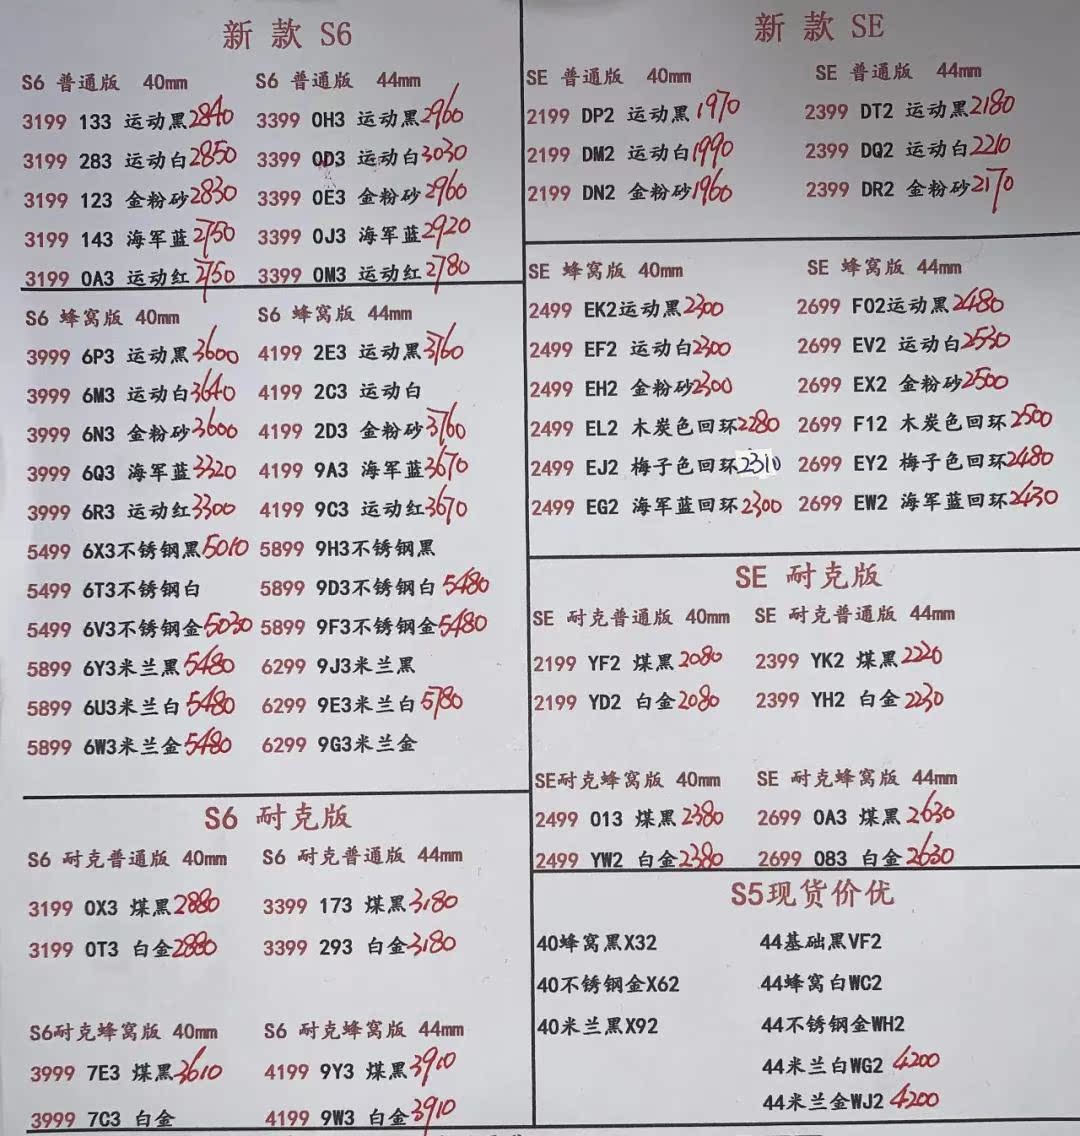 新 款 S6
S6 普通版 40mm S6 普通版 44mm
3199 133 运动黑2840 3399 0H3 运动黑2960
3199 283 运动白2850 3399 0D3 运动白3030
3199 123 金粉砂2830 3399 0E3 金粉砂2960
3199 143 海军蓝2750 3399 0J3 海军蓝2920
3199 0A3 运动红2750 3399 0M3 运动红2780
S6 蜂窝版 40mm S6 蜂窝版 44mm
3999 6P3 运动黑3600 4199 2E3 运动黑3760
3999 6M3 运动白3640 4199 2C3 运动白
3999 6N3 金粉砂3600 4199 2D3 金粉砂3760
3999 6Q3 海军蓝3320 4199 9A3 海军蓝3670
3999 6R3 运动红3300 4199 9C3 运动红3670
5499 6X3不锈钢黑5010 5899 9H3不锈钢黑
5499 6T3不锈钢白 5899 9D3不锈钢白 5480
5499 6V3不锈钢金5030 5899 9F3不锈钢金5480
5899 6Y3米兰黑5480 6299 9J3米兰黑
5899 6U3米兰白5480 6299 9E3米兰白5780
5899 6W3米兰金5480 6299 9G3米兰金
S6 耐克版
S6 耐克普通版 40mm S6 耐克普通版 44mm
3199 0X3 煤黑2880 3399 173 煤黑3180
3199 0T3 白金2880 3399 293 白金3180
S6耐克蜂窝版 40mm S6 耐克蜂窝版 44mm
3999 7E3 煤黑3610 4199 9Y3 煤黑3910
3999 7C3 白金 4199 9W3 白金3910
新 款 SE
SE 普通版 40mm SE 普通版 44mm
2199 DP2 运动黑1970 2399 DT2 运动黑2180
2199 DM2 运动白1990 2399 DQ2 运动白2210
2199 DN2 金粉砂1960 2399 DR2 金粉砂2170
SE 蜂窝版 40mm SE 蜂窝版 44mm
2499 EK2运动黑2300 2699 F02运动黑2480
2499 EF2 运动白2300 2699 EV2 运动白2530
2499 EH2 金粉砂2300 2699 EX2 金粉砂2500
2499 EL2 木炭色回环2280 2699 F12 木炭色回环2500
2499 EJ2 梅子色回环2310 2699 EY2 梅子色回环2480
2499 EG2 海军蓝回环2300 2699 EW2 海军蓝回环2430
SE 耐克版
SE 耐克普通版 40mm SE 耐克普通版 44mm
2199 YF2 煤黑2080 2399 YK2 煤黑2220
2199 YD2 白金2080 2399 YH2 白金2230
SE耐克蜂窝版 40mm SE 耐克蜂窝版 44mm
2499 013 煤黑2380 2699 0A3 煤黑2630
2499 YW2 白金2380 2699 083 白金2630
S5现货价优
40蜂窝黑X32 44基础黑VF2
40不锈钢金X62 44蜂窝白WC2
40米兰黑X92 44不锈钢金WH2
44米兰白WG2 4200
44米兰金WJ2 4200